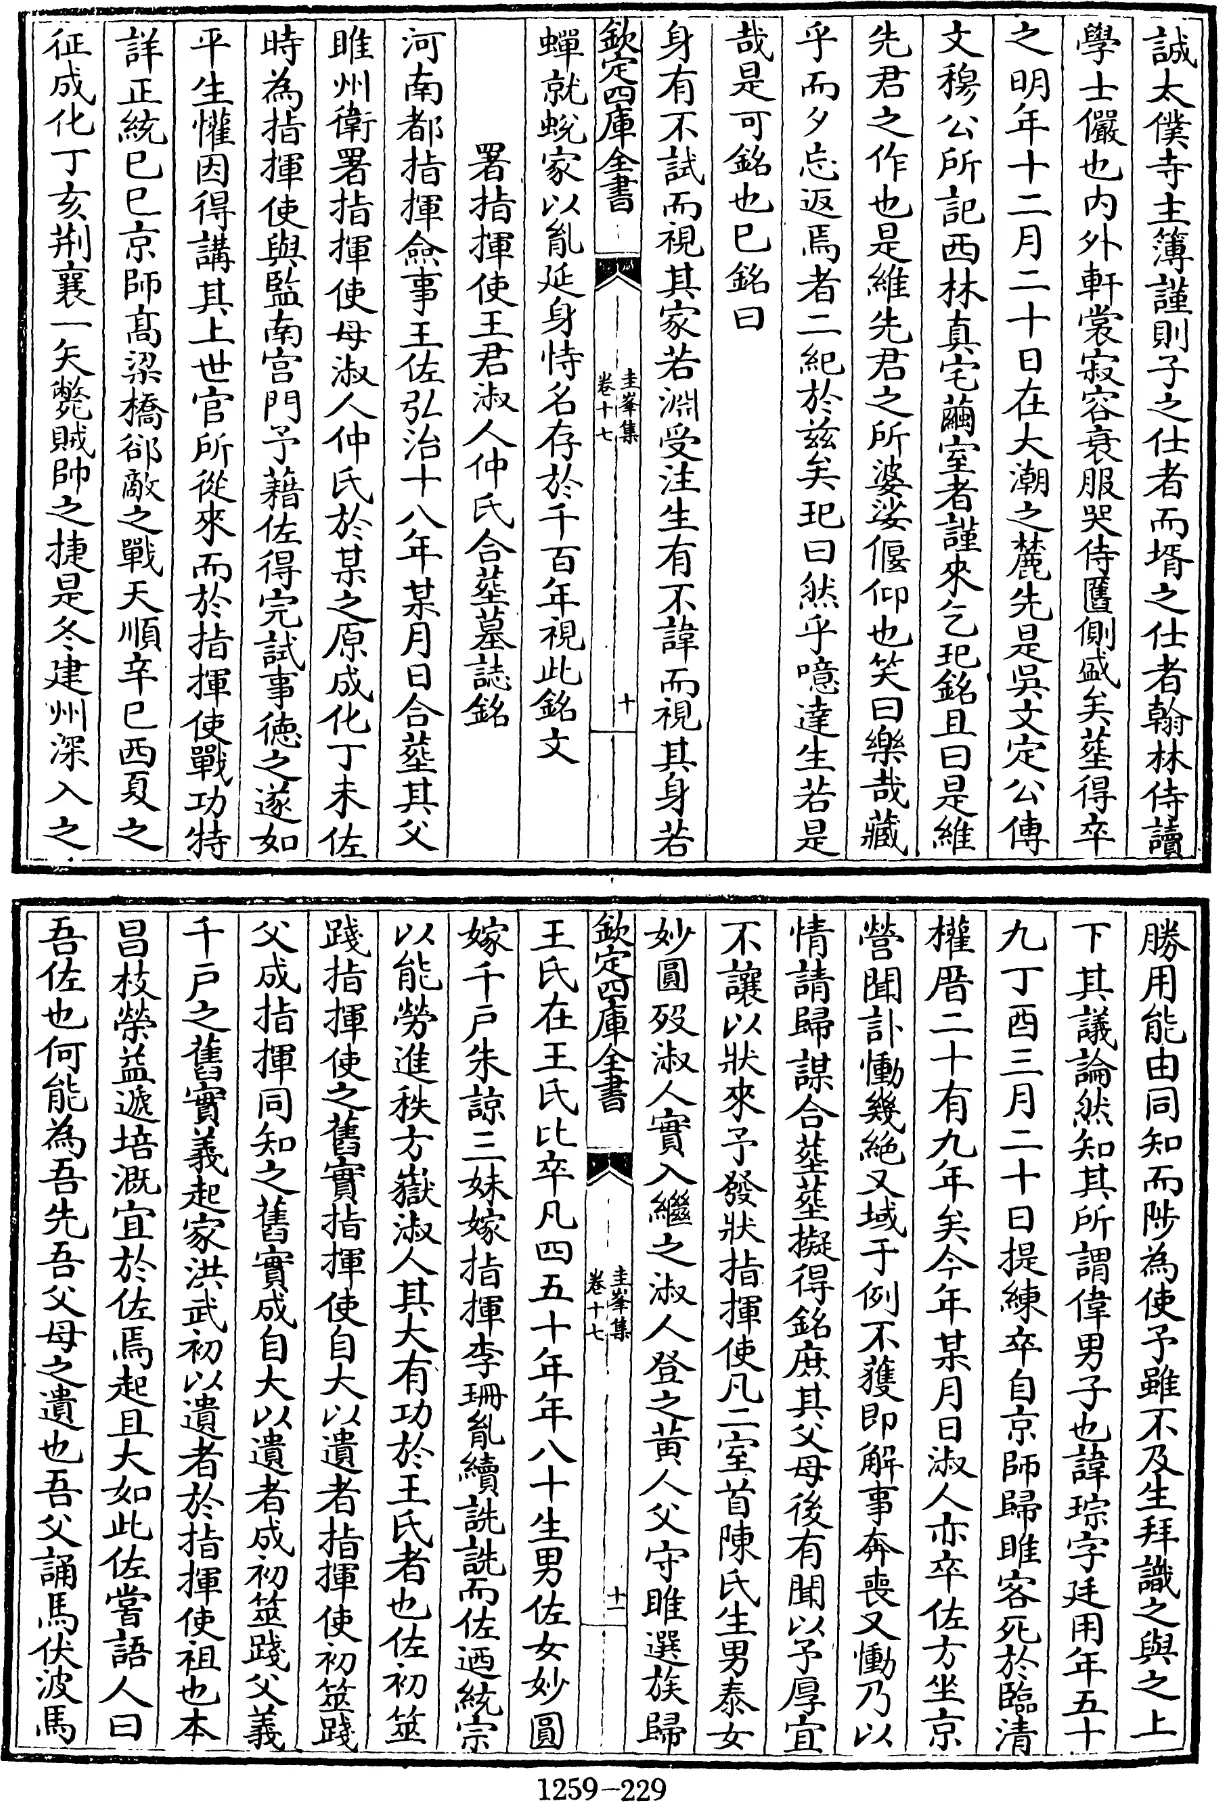 誠太僕寺主簿謹則子之仕者而壻之仕者翰林侍讀
學士儼也内外軒裳寂容衰服哭侍匶側盛矣塟得卒
之明年十二月二十日在大潮之麓先是吳文定公傳
文穆公所記西林真宅繭室者謹來乞玘銘且曰是維
先君之作也是維先君之所婆娑偃仰也笑曰樂哉藏
乎而夕忘返焉者二紀於兹矣玘曰然乎噫達生若是
哉是可銘也已銘曰
身有不試而視其家若淵受注生有不諱而視其身若
欽定四庫全書
圭峯集
卷十七
十
蟬就蛻家以胤延身恃名存於千百年視此銘文
署指揮使王君淑人仲氏合塟墓誌銘
河南都指揮僉事王佐弘治十八年某月日合塟其父
睢州衛署指揮使母淑人仲氏於某之原成化丁未佐
時為指揮使與監南宫門予藉佐得完試事徳之遂如
平生懽因得講其上世官所從來而於指揮使戰功特
詳正統己巳京師髙梁橋郤敵之戰天順辛巳西夏之
征成化丁亥荆襄一矢斃賊帥之捷是冬建州深入之
勝用能由同知而陟為使予雖不及生拜識之與之上
下其議論然知其所謂偉男子也諱琮字廷用年五十
九丁酉三月二十日提練卒自京師歸睢客死於臨清
權厝二十有九年矣今年某月日淑人亦卒佐方坐京
營聞訃慟幾絶又域于例不獲即解事奔喪又慟乃以
情請歸謀合塟塟擬得銘庶其父母後有聞以予厚宜
不讓以狀來予發狀指揮使凡二室首陳氏生男泰女
妙圓殁淑人實入繼之淑人登之黄人父守睢選族歸
欽定四庫全書
圭峯集
卷十七
十一
王氏在王氏比卒凡四五十年年八十生男佐女妙圓
嫁千戸朱諒三妹嫁指揮李珊胤續詵詵而佐迺統宗
以能勞進秩方嶽淑人其大有功於王氏者也佐初筮
踐指揮使之舊實指揮使自大以遺者指揮使初筮踐
父成指揮同知之舊實成自大以遺者成初筮踐父義
千戸之舊實義起家洪武初以遺者於指揮使祖也本
昌枝榮益遞培溉宜於佐焉起且大如此佐嘗語人曰
吾佐也何能為吾先吾父母之遺也吾父誦馬伏波馬
1259-229